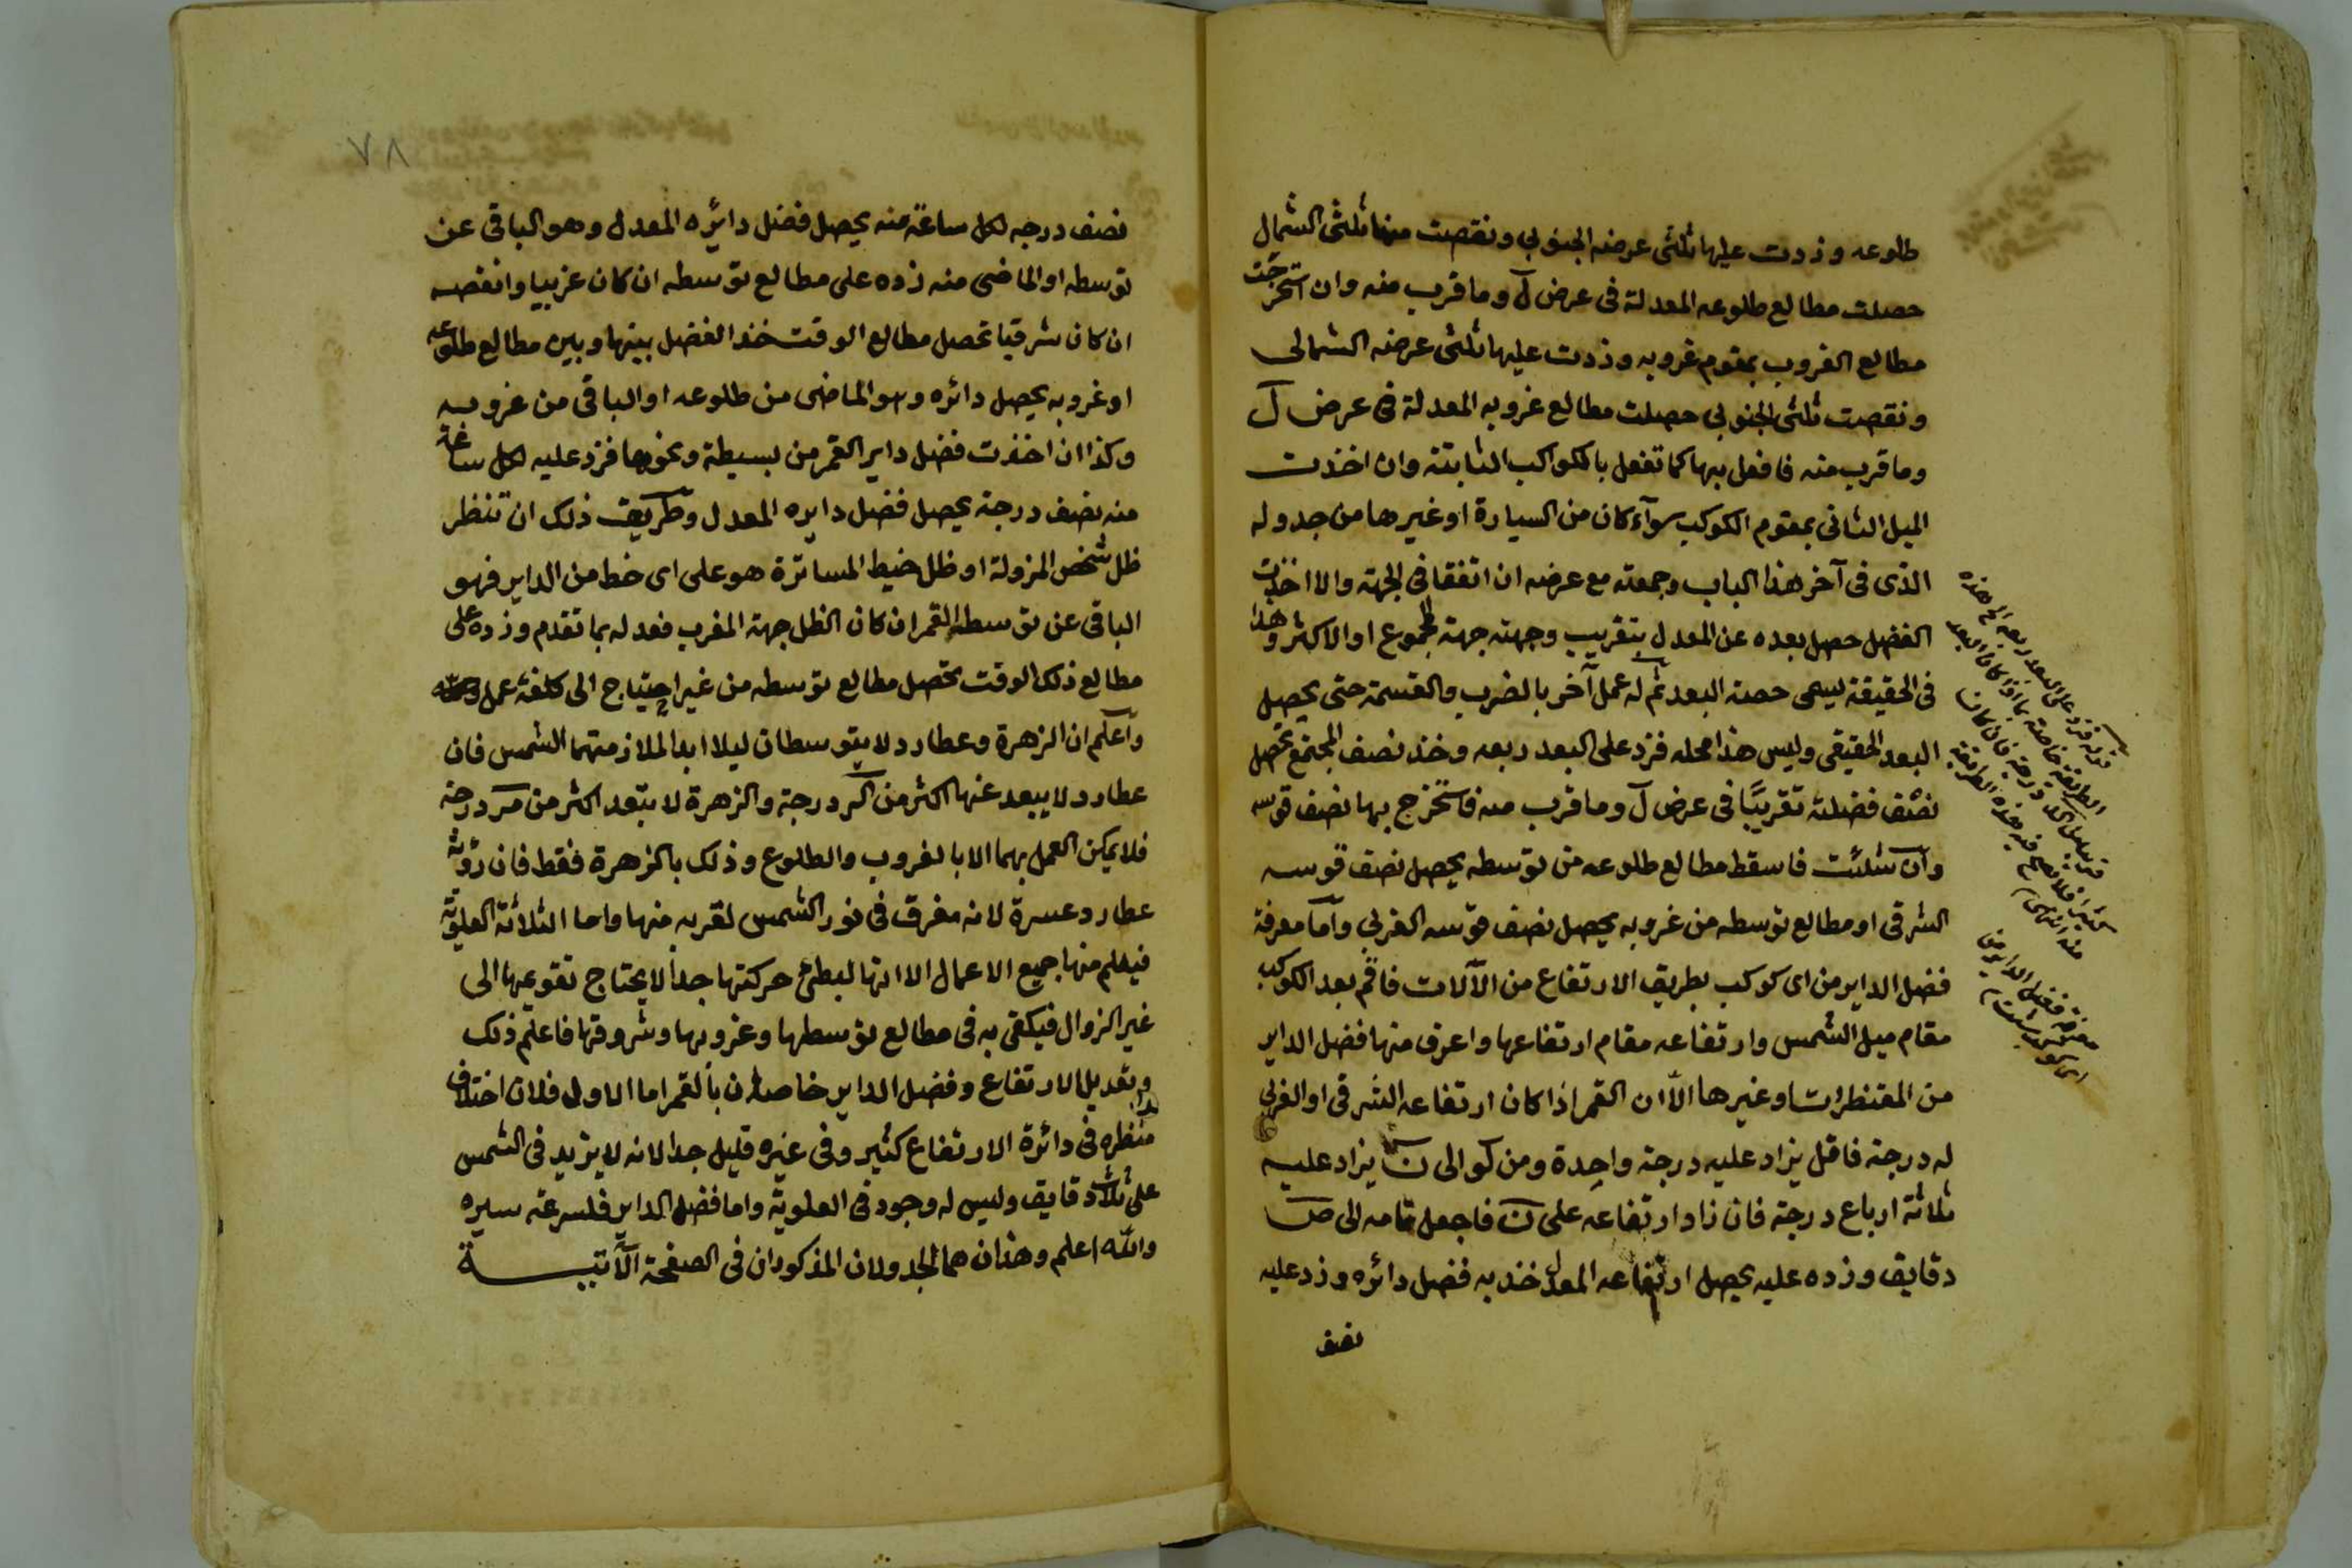 طلوعه وزدت عليها ثلثى عرضه الجنوبي ونقصت منها ثلثى الشمال
حصلت مطالع طلوعه المعدلة فى عرض ل وما قرب منه وان استخرجت
مطالع الغروب بمقوم غروبه وزدت عليها ثلثى عرضه الشمالى
ونقصت ثلثى الجنوبي حصلت مطالع غروبه المعدلة فى عرض ل
وما قرب منه فافعل بها كما تفعل بالكواكب الثابتة وان اخذت
الميل الثانى بمقوم الكوكب سوآء كان من السيارة او غيرها من جدوله
الذى فى آخر هذا الباب وجمعته مع عرضه ان اتفقا فى الجهة والا اخذت
الفضل حصل بعده عن المعدل بتقريب وجهته جهة المجموع او الاكثر وهذا
فى الحقيقة يسمى حصة البعد ثم له عمل آخر بالضرب والقسمة حتى يحصل
البعد الحقيقى وليس هذا محله فزد على البعد ربعه وخذ نصف المجتمع تحصل
نصف فضلته تقريبًا فى عرض ل وما قرب منه فاستخرج بها نصف قوسه
وان شئت فاسقط مطالع طلوعه من توسطه يحصل نصف قوسه
الشرقى او مطالع توسطه من غروبه يحصل نصف قوسه الغربي واما معرفة
فضل الداير من اى كوكب بطريق الارتفاع من الآلات فاقم بعد الكوكب
مقام ميل الشمس وارتفاعه مقام ارتفاعها واعرف منها فضل الداير
من المقنطرات او غيرها الا ان القمر اذا كان ارتفاعه الشرقى او الغربي
له درجة فاقل يزاد عليه درجة واحدة ومن كو الى ن يزاد عليه
ثلاثة ارباع درجة فان زاد ارتفاعه على ن فاجعل تمامه الى ص
دقايق وزده عليه يحصل ارتفاعه المعدل خذ به فضل دائره وزد عليه
نصف
قوله فزد على البعد ربعه الخ هذه
الطريقة خاصة بما اذا كان البعد
معرفة فضل الداير من
اى كوكب
٧٨
نصف درجه لكل ساعة منه يحصل فضل دائره المعدل وهو الباقى عن
توسطه او الماضى منه زده على مطالع توسطه ان كان غربيا وانقصه
ان كان شرقيا تحصل مطالع الوقت خذ الفضل بينها وبين مطالع طلوعه
او غروبه يحصل دائره وهو الماضى من طلوعه او الباقى من غروبه
وكذا ان اخذت فضل داير القمر من بسيطة ونحوها فزد عليه لكل ساعة
منه نصف درجة يحصل فضل دايره المعدل وطريق ذلك ان تنظر
ظل شخص المزولة او ظل خيط المساترة هو على اى خط من الداير فهو
الباقى عن توسط القمر ان كان الظل جهة المغرب فعدله بما تقدم وزده على
مطالع ذلك الوقت تحصل مطالع توسطه من غير احتياج الى كلفة عمل
واعلم ان الزهرة وعطارد لا يتوسطان ليلا ابدا لملازمتهما الشمس فان
عطارد لا يبعد عنها اكثر من درجة والزهرة لا تبعد اكثر من درجة
فلا يمكن العمل بهما الا بالغروب والطلوع وذلك بالزهرة فقط فان رؤية
عطارد عسرة لانه مغرق فى نور الشمس لقربه منها واما الثلاثة العلوية
فيعلم منها جميع الاعمال الا انها لبطئ حركتها جدا لا يحتاج تقويمها الى
غير الزوال فيكفى به فى مطالع توسطها وغروبها وشروقها فاعلم ذلك
وتعديل الارتفاع وفضل الداير خاصان بالقمر اما الاول فلان اختلاف
منظره فى دائرة الارتفاع كثير وفى غيره قليل جدا لانه لا يزيد فى الشمس
على ثلاث دقايق وليس له وجود فى العلوية واما فضل الداير فلسرعة سيره
والله اعلم وهذان هما الجدولان المذكوران فى الصفحة الآتية